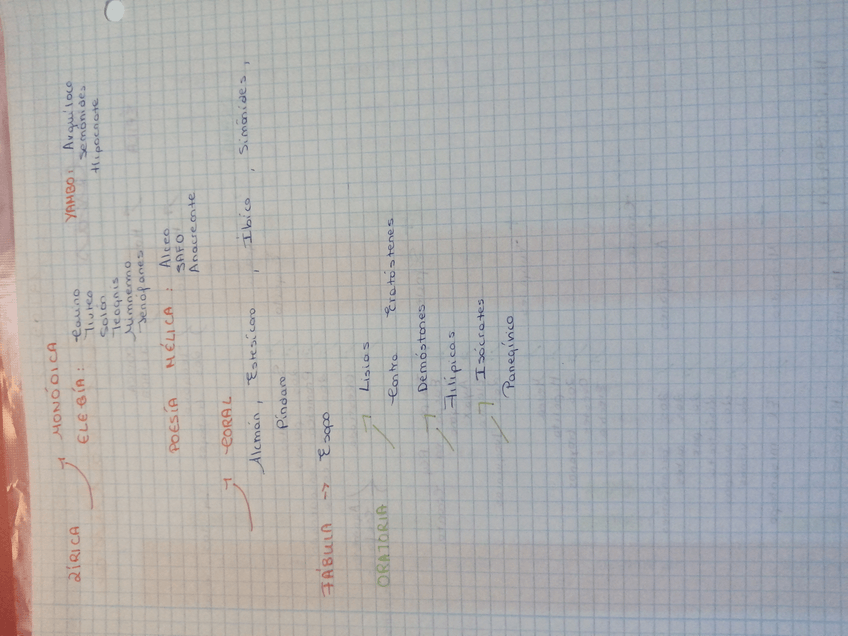 LÍRICA → MONÓDICA
ELEGÍA: Calino
Tirteo
Solón
Teognis
Mimnermo
Jenófanes
YAMBO: Arquíloco
Semónides
Hiponacte
POESÍA MÉLICA: Alceo
SAFO
Anacreonte
→ CORAL
Alcmán, Estesícoro, Íbico, Simónides,
Píndaro
FÁBULA -> Esopo
ORATORIA → Lisias
Contra Eratóstenes
→ Demóstenes
Filípicas
→ Isócrates
Panegírico